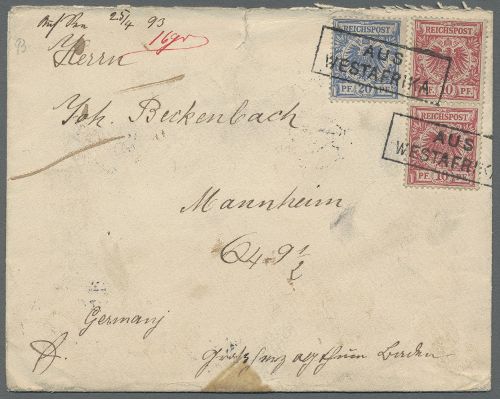 Auf See 25/4 93
16gr
B
Herrn
REICHSPOST
20 PF.
REICHSPOST
10 PF.
AUS
WESTAFRIKA
REICHSPOST
PF. 10 PF.
AUS
WESTAFRIKA
Joh. Beckenbach
Mannheim
Q 4. 9 1/2
Germany
Grossherzogthum Baden